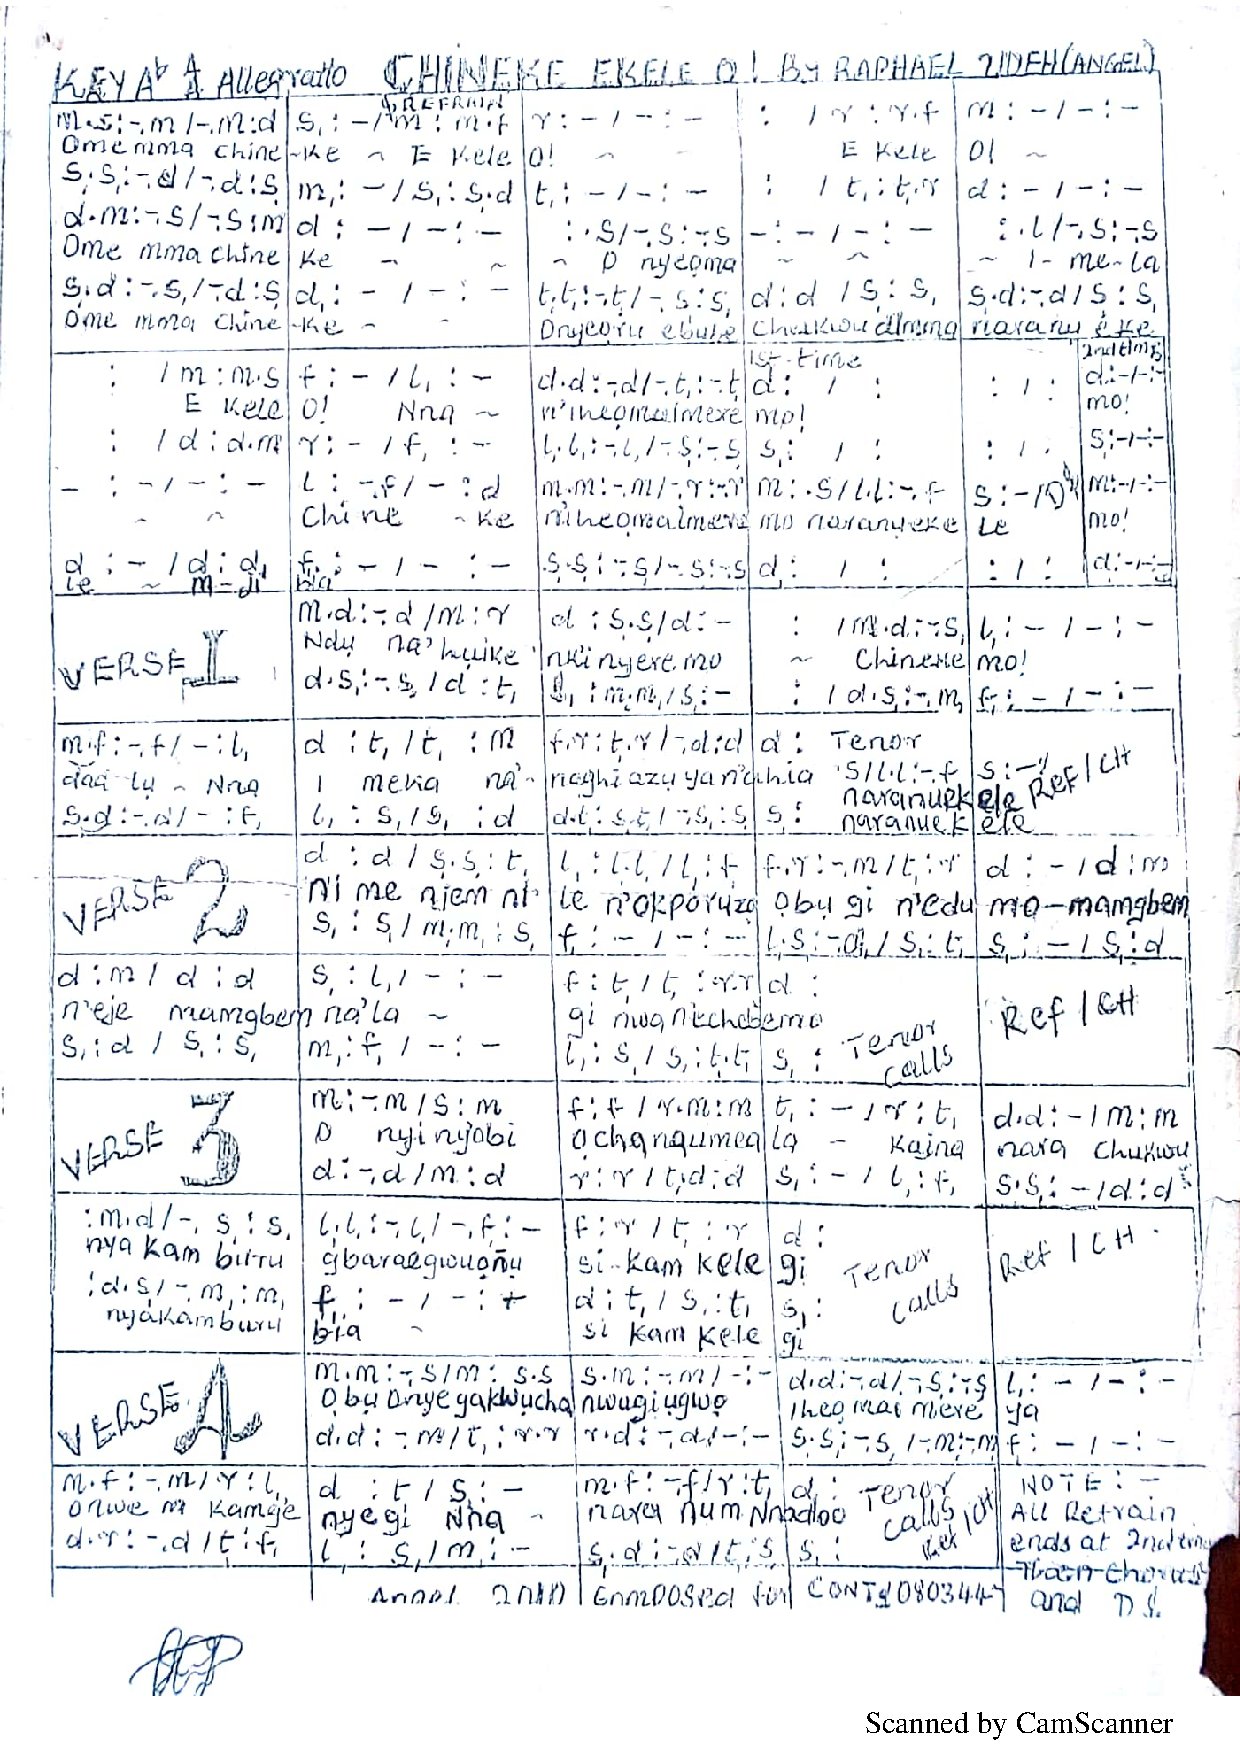 KEY Ab 4/4 Allegratto CHINEKE EKELE O! BY RAPHAEL ZIDEH (ANGEL)
REFRAIN
m.s:-.m/-.m:d s,:-/m:m.f r:-/-:- : /r:r.f m:-/-:-
Ome mma chine-ke ~ E kele O! ~ ~ E kele O! ~
s,.s,:-.d/-.d:s, m,:-/s,:s,.d t,:-/-:- : /t,:t,.r d:-/-:-
d.m:-.s/-.s:m d:-/-:- :.s/-.s:-.s -:-/-:- :.l/-.s:-.s
Ome mma chine ke ~ ~ ~ O nyeoma ~ ~ ~ I-me-la
s,.d:-.s,/-.d:s, d,:-/-:- t,.t,:-.t,/-.s,:s, d:d/s,:s, s,.d:-.d/s,:s,
Ome mma chine-ke ~ ~ Onyeoru ebube Chukwu dimma naranu eke
1st time 2nd time
: /m:m.s f:-/l,:- d.d:-.d/-.t,:-.t, d: / : : / : d:-/-:-
E kele O! Nna ~ n'iheomaimere mo! mo!
: /d:d.m r:-/f,:- l,.l,:-.l,/-.s,:-.s, s,: / : : / : s,:-/-:-
-:-/-:- l:-.f/-:d m.m:-.m/-.r:-.r m:.s/l.l:-.f s:-/ m:-/-:-
~ ~ Chine ~ke n'iheomaimere mo naranyeke le mo!
d:-/d:d, f,:-/-:- s,.s,:-.s,/-.s,:-.s, d,: / : : / : d,:-/-:-
le ~ m-ji bia
VERSE 1
m.d:-.d/m:r d:s,.s,/d:- : /m.d:-.s, l,:-/-:-
Ndu na'huike nkinyere mo ~ Chineke mo!
d.s,:-.s,/d:t, s,:m,.m,/s,:- : /d.s,:-.m, f,:-/-:-
m.f:-.f/-:l, d:t,/t,:m f.r:t,.r/-.d:d d: Tenor
daa-lu ~ Nna I meka na'- naghi azu ya n'ahia s/l.l:-.f s:- Ref/CH
s,.d:-.d/-:f, l,:s,/s,:d d.t,:s,.t,/-.s,:s, s,: naranuekele
naranuekele
VERSE 2
d:d/s,.s,:t, l,:l,.l,/l,:f f.r:-.m/t,:r d:-/d:m
n'ime njem ni- le n'okporuzo obu gi n'edu mo-mamgbem
s,:s,/m,.m,:s, f,:-/-:- l,.s,:-.d/s,:t, s,:-/s,:d
d:m/d:d s,:l,/-:- f:t,/t,:r.r d:
n'eje mamgbem na'la ~ gi nwa n'echebemo
s,:d/s,:s, m,:f,/-:- l,:s,/s,:t,.t, s,: Tenor calls Ref/CH
VERSE 3
m:-.m/s:m f:f/r.m:m t,:-/r:t, d.d:-/m:m
O nyinyobi ochanqumeala ~ kaina nara Chukwu
d:-.d/m:d r:r/t,.d:d s,:-/l,:f, s,.s,:-/d:d
:m.d/-.s,:s, l,.l,:-.l,/-.f,:- f:r/t,:r d:
nya kam buru gbaraegwuonu si-kam kele gi
:d.s,/-.m,:m, f,:-/-: d:t,/s,:t, s,: Tenor calls Ref/CH
nyakamburu bia ~ si kam kele gi
VERSE 4
m.m:-.s/m:s.s s.m:-.m/-:- d.d:-.d/-.s,:-.s, l,:-/-:-
Obu Onyeyakwucha nwugiugwo iheomaimere ya
d.d:-.m/t,:r.r r.d:-.d/-:- s,.s,:-.s,/-.m,:-.m, f,:-/-:-
m.f:-.m/r:l, d:t,/s,:- m.f:-.f/r:t, d: Tenor calls Ref/CH
onwe m kamge nyegi Nna ~ nara num Nnadoo
d.r:-.d/t,:f, l,:s,/m,:- s,.d:-.d/t,:s, s,:
NOTE:-
All Refrain
ends at 2nd time
Then Chorus
and D.S.
Angel 2010 Composed for CONT: 0803447
Scanned by CamScanner